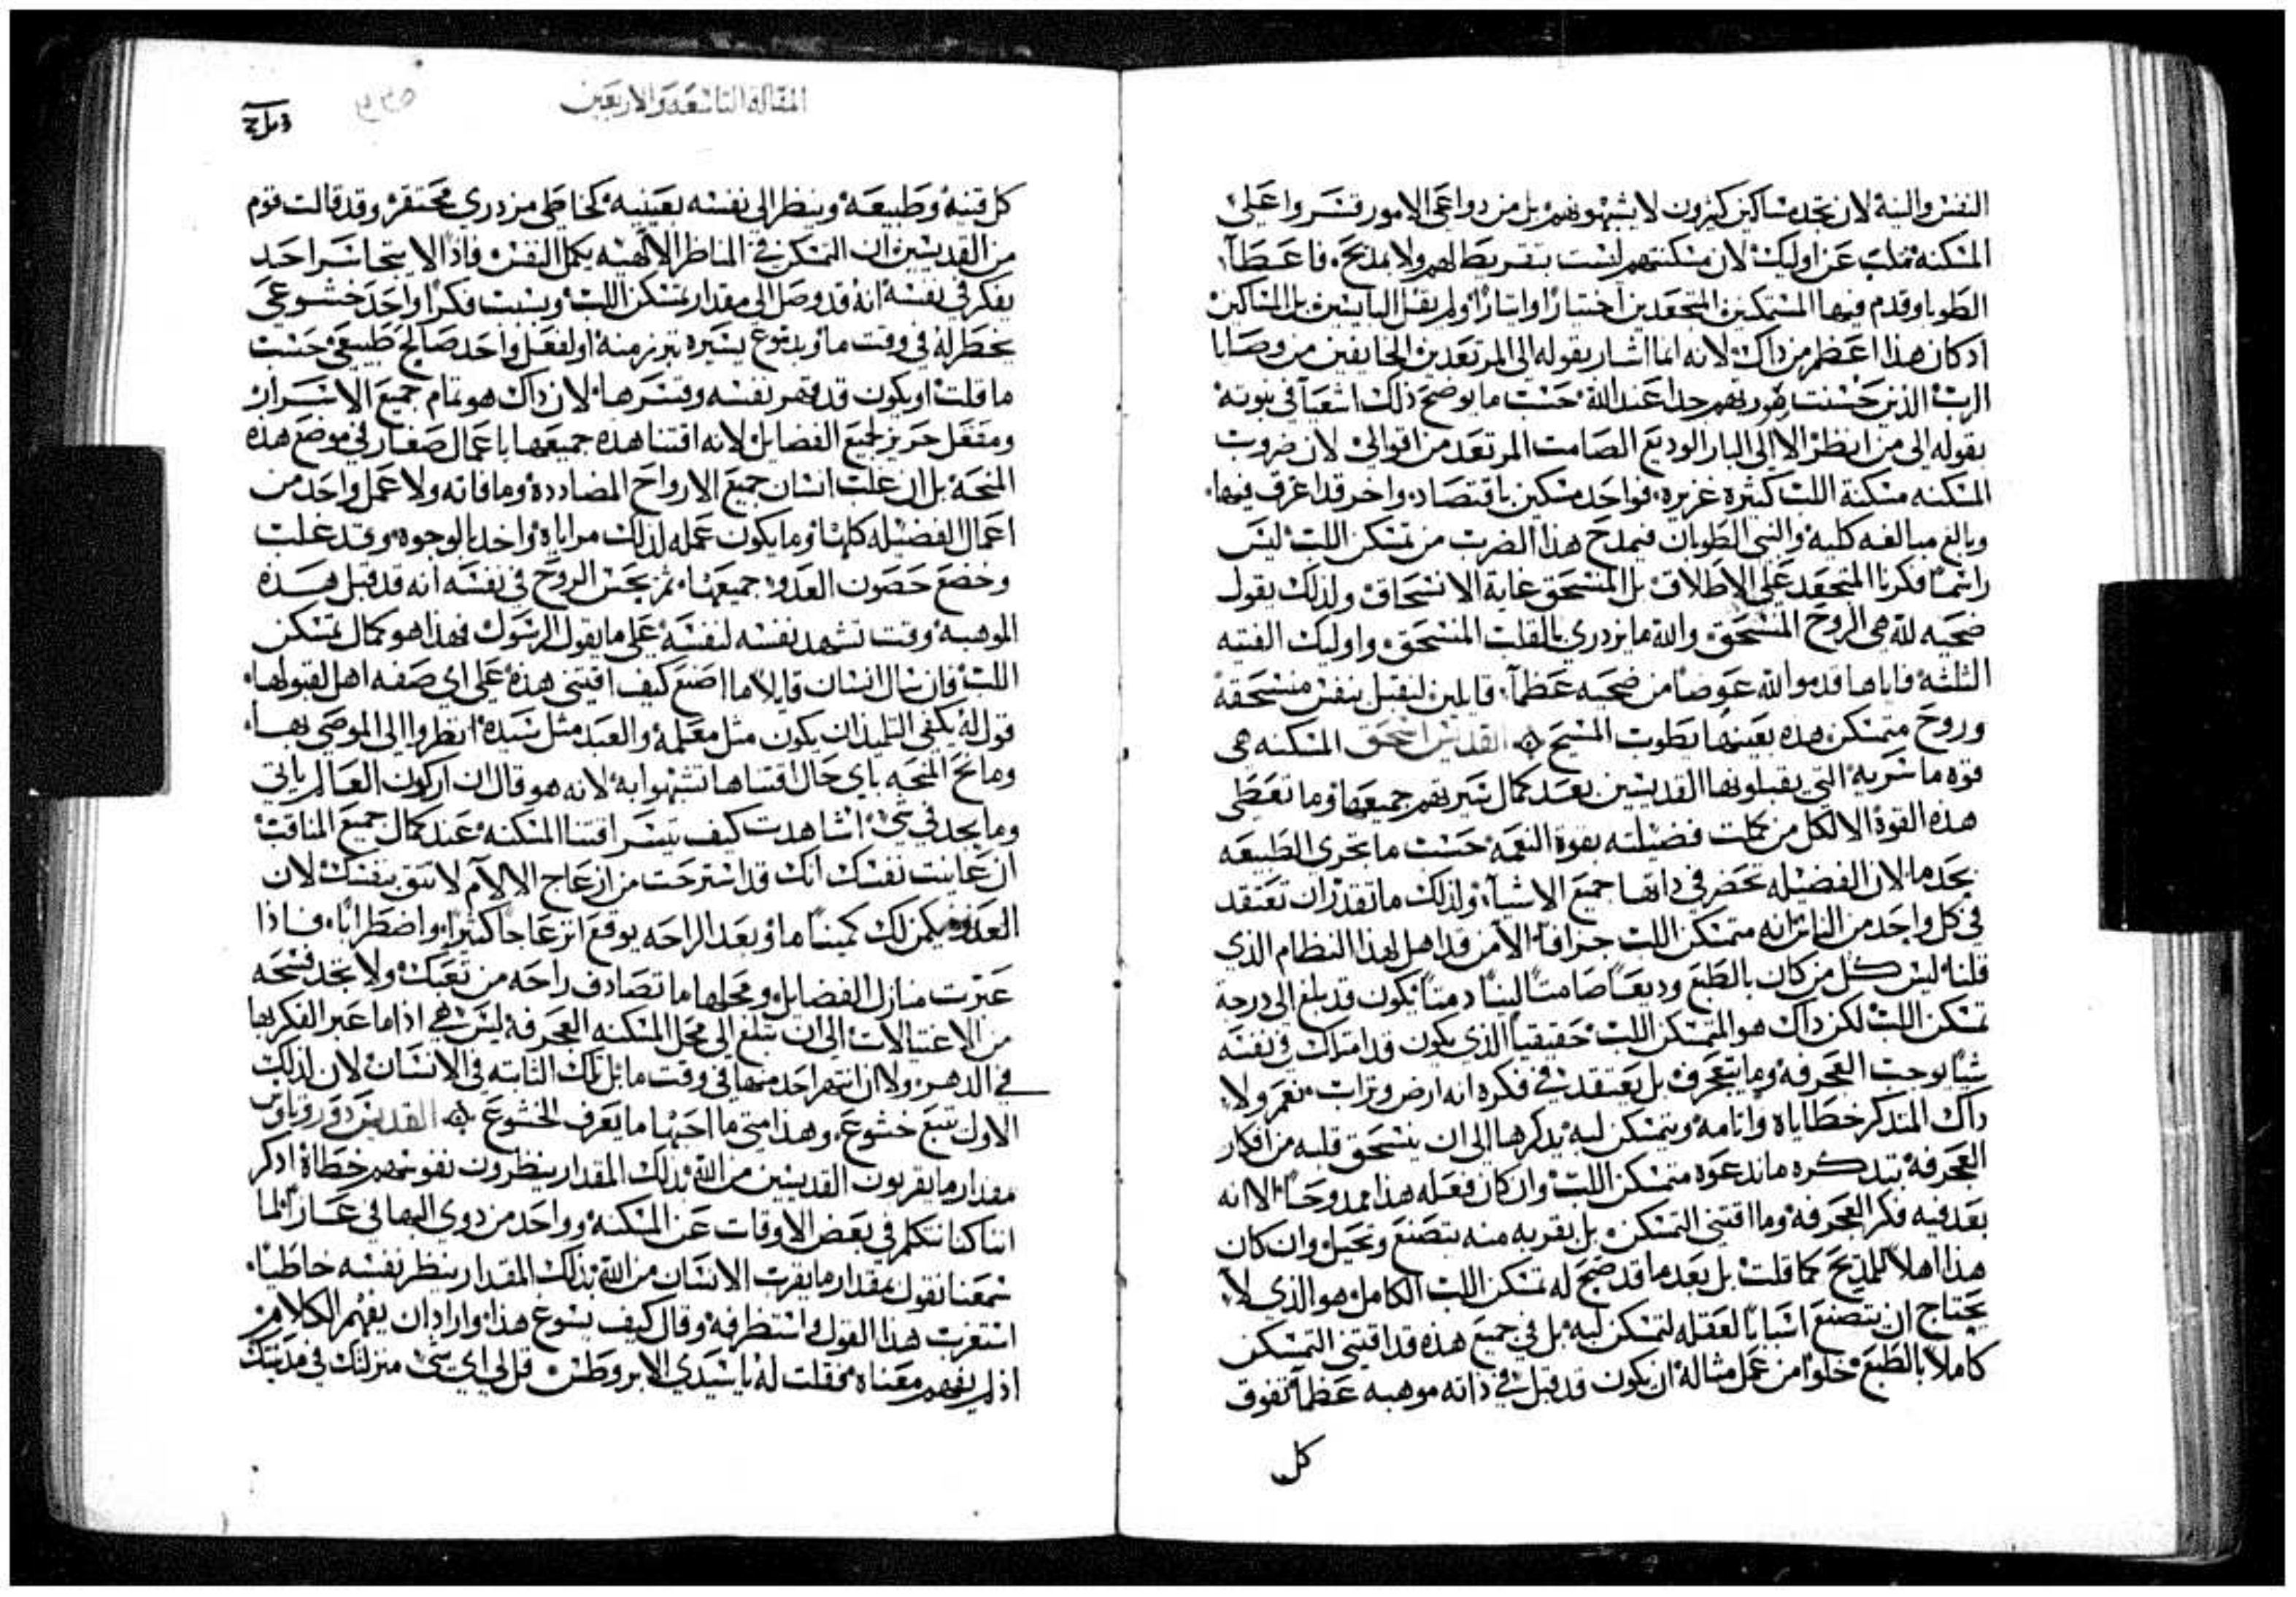 النفس والنية لان تجد مساكين كثيرون لا يشبهونهم بل من دواعي الامور قسروا على
المسكنه تملب عن اوليك لان مسكنتهم ليست بتقريظ لهم ولا بمديح فاعطا
الطوبا وقدم فيها المستمكنين المتجعدين اختيارا وايثارا ولم يقل البايسين بل المساكين
اذ كان هذا اعظم من ذاك لانه انما اشار بقوله الى المرتعدين الخايفين من وصايا
الرب الذين حسنت صورتهم جدا عند الله حسب ما يوضح ذلك اشعيا في نبوته
بقوله الى من انظر الا الى البار الوديع الصامت المرتعد من اقوالي لان ضروب
المسكنه مسكنة اللب كثيرة غزيره فواحد مسكين باقتصاد واخر قد اغرق فيها
وبالغ مبالغه كليه والنبي الطوبان فيمدح هذا الضرب من تمسكن اللب ليس
راسما فكرنا المتجعد على الاطلاق بل المنسحق غاية الانسحاق ولذلك يقول
ضحيه لله هي الروح المنسحق والله ما يزدري بالقلب المنسحق واوليك الفتيه
الثلثه فاياها قدموا لله عوضا من ضحيه عظما قايلين لنقبل بنفس منسحقه
وروح متمسكن هذه بعينها يطوب المسيح القديس اسحق المسكنه هي
قوه ما سريه التي يقبلونها القديسين بعد كمال سيرتهم جميعها وما تعطى
هذه القوة الا لكل من كملت فضيلته بقوة النعمه حسب ما تجري الطبيعه
بحد ما لان الفضيله تحضر في ذاتها جميع الاشيا ولذلك ما تقدر ان تعتقد
في كل واحد من الناس انه متمسكن اللب جزافا الا من قد اهل لهذا النظام الذي
قلنا ليس كل من كان بالطبع وديعا صامتا لينا دمثا يكون قد بلغ الى درجة
تمسكن اللب لكن ذاك هو المتمسكن اللب حقيقيا الذي يكون قد امتلك في نفسه
شيا يوجب العجرفه وما يتعجرف بل يعتقد في فكره انه ارض وتراب نعم ولا
ذاك المتذكر خطاياه واثامه ويتمسكن لبه بذكرها الى ان ينسحق قلبه من افكار
العجرفه بتذكره ما ندعوه متمسكن اللب وان كان فعله هذا ممدوحا الا انه
بعد فيه فكر العجرفه وما اقتنى التمسكن بل يقربه منه بتصنع وتحيل وان كان
هذا اهلا للمديح كما قلت بل بعد ما قد صح له تمسكن اللب الكامل هو الذي لا
يحتاج ان يتصنع اسبابا لعقله لتمسكن لبه بل في جميع هذه قد اقتنى التمسكن
كاملا بالطبع خلوا من عمل مثاله ان يكون قد قبل في ذاته موهبه عظما تفوق
كل
المقالة التاسعة والاربعين
كل قنيه وطبيعه وينظر الى نفسه بعينيه كخاطي مزدري محتقر وقد قالت قوم
من القديسين ان التمسكن في المناظر الالهيه يكمل النفس فاذا لا يتجاسر احد
يفكر في نفسه انه قد وصل الى مقدار تمسكن اللب وبسبب فكرا واحد خشوعي
يخطر له في وقت ما وبدموع يسيره تبرز منه او لفعل واحد صالح طبيعي حسب
ما قلت او يكون قد قهر نفسه وقسرها لان ذاك هو تمام جميع الاسرار
ومعقل حريز لجميع الفضايل لانه اقتنا هذه جميعها باعمال صغار في موضع هذه
المنحه بل ان غلب انسان جميع الارواح المضادده وما فاته ولا عمل واحد من
اعمال الفضيله كلها وما يكون عمله لذلك مراياه واحد بالوجوه وقد غلب
وخضع حصون العدو جميعها ثم يحس الروح في نفسه انه قد قبل هذه
الموهبه وقت تشهد نفسه لنفسه على ما يقول الرسول فهذا هو كمال تمسكن
اللب وان سال انسان قايلا ما اصنع كيف اقتني هذه على اي صفه اهل لقبولها
قول له يكفي التلميذ ان يكون مثل معلمه والعبد مثل سيده انظروا الى الموصي بها
ومانح المنحه باي حال اقتناها تشبهوا به لانه هو قال ان اركون العالم ياتي
وما يجد في شي اشاهدت كيف تيسر اقتنا المسكنه عند كمال جميع المناقب
ان عاينت نفسك انك قد استرحت من ازعاج الالام لا تثق بنفسك لان
العدو يكمن لك كمينا ما وبعد الراحه يوقع انزعاجا كثيرا واضطرابا فاذا
عبرت منازل الفضايل ومحلها ما تصادف راحه من تعبك ولا تجد فسحه
من الاغتيالات الى ان تبلغ الى محل المسكنه العجرفه ليس هي اذا ما عبر الفكر بها
في الدهر ولا ان انتهر احد منها في وقت ما بل تلك الثابته في الانسان لان لذلك
الاول تتبع خشوع وهذا متى ما احبها ما يعرف الخشوع القديس دوروثاوس
مقدار ما يقربون القديسين من الله بذلك المقدار ينظرون نفوسهم خطاة اذكر
اننا كنا نتكلم في بعض الاوقات عن المسكنه وواحد من ذوي البها في غازا لما
سمعنا نقول بمقدار ما يقرب الانسان من الله بذلك المقدار ينظر نفسه خاطيا
استغرب هذا القول واستظرفه وقال كيف يسوغ هذا واراد ان يفهم الكلام
اذ لم يفهم معناه فقلت له يا سيدي الابروطس قل لي اي شي منزلتك في مدينتك